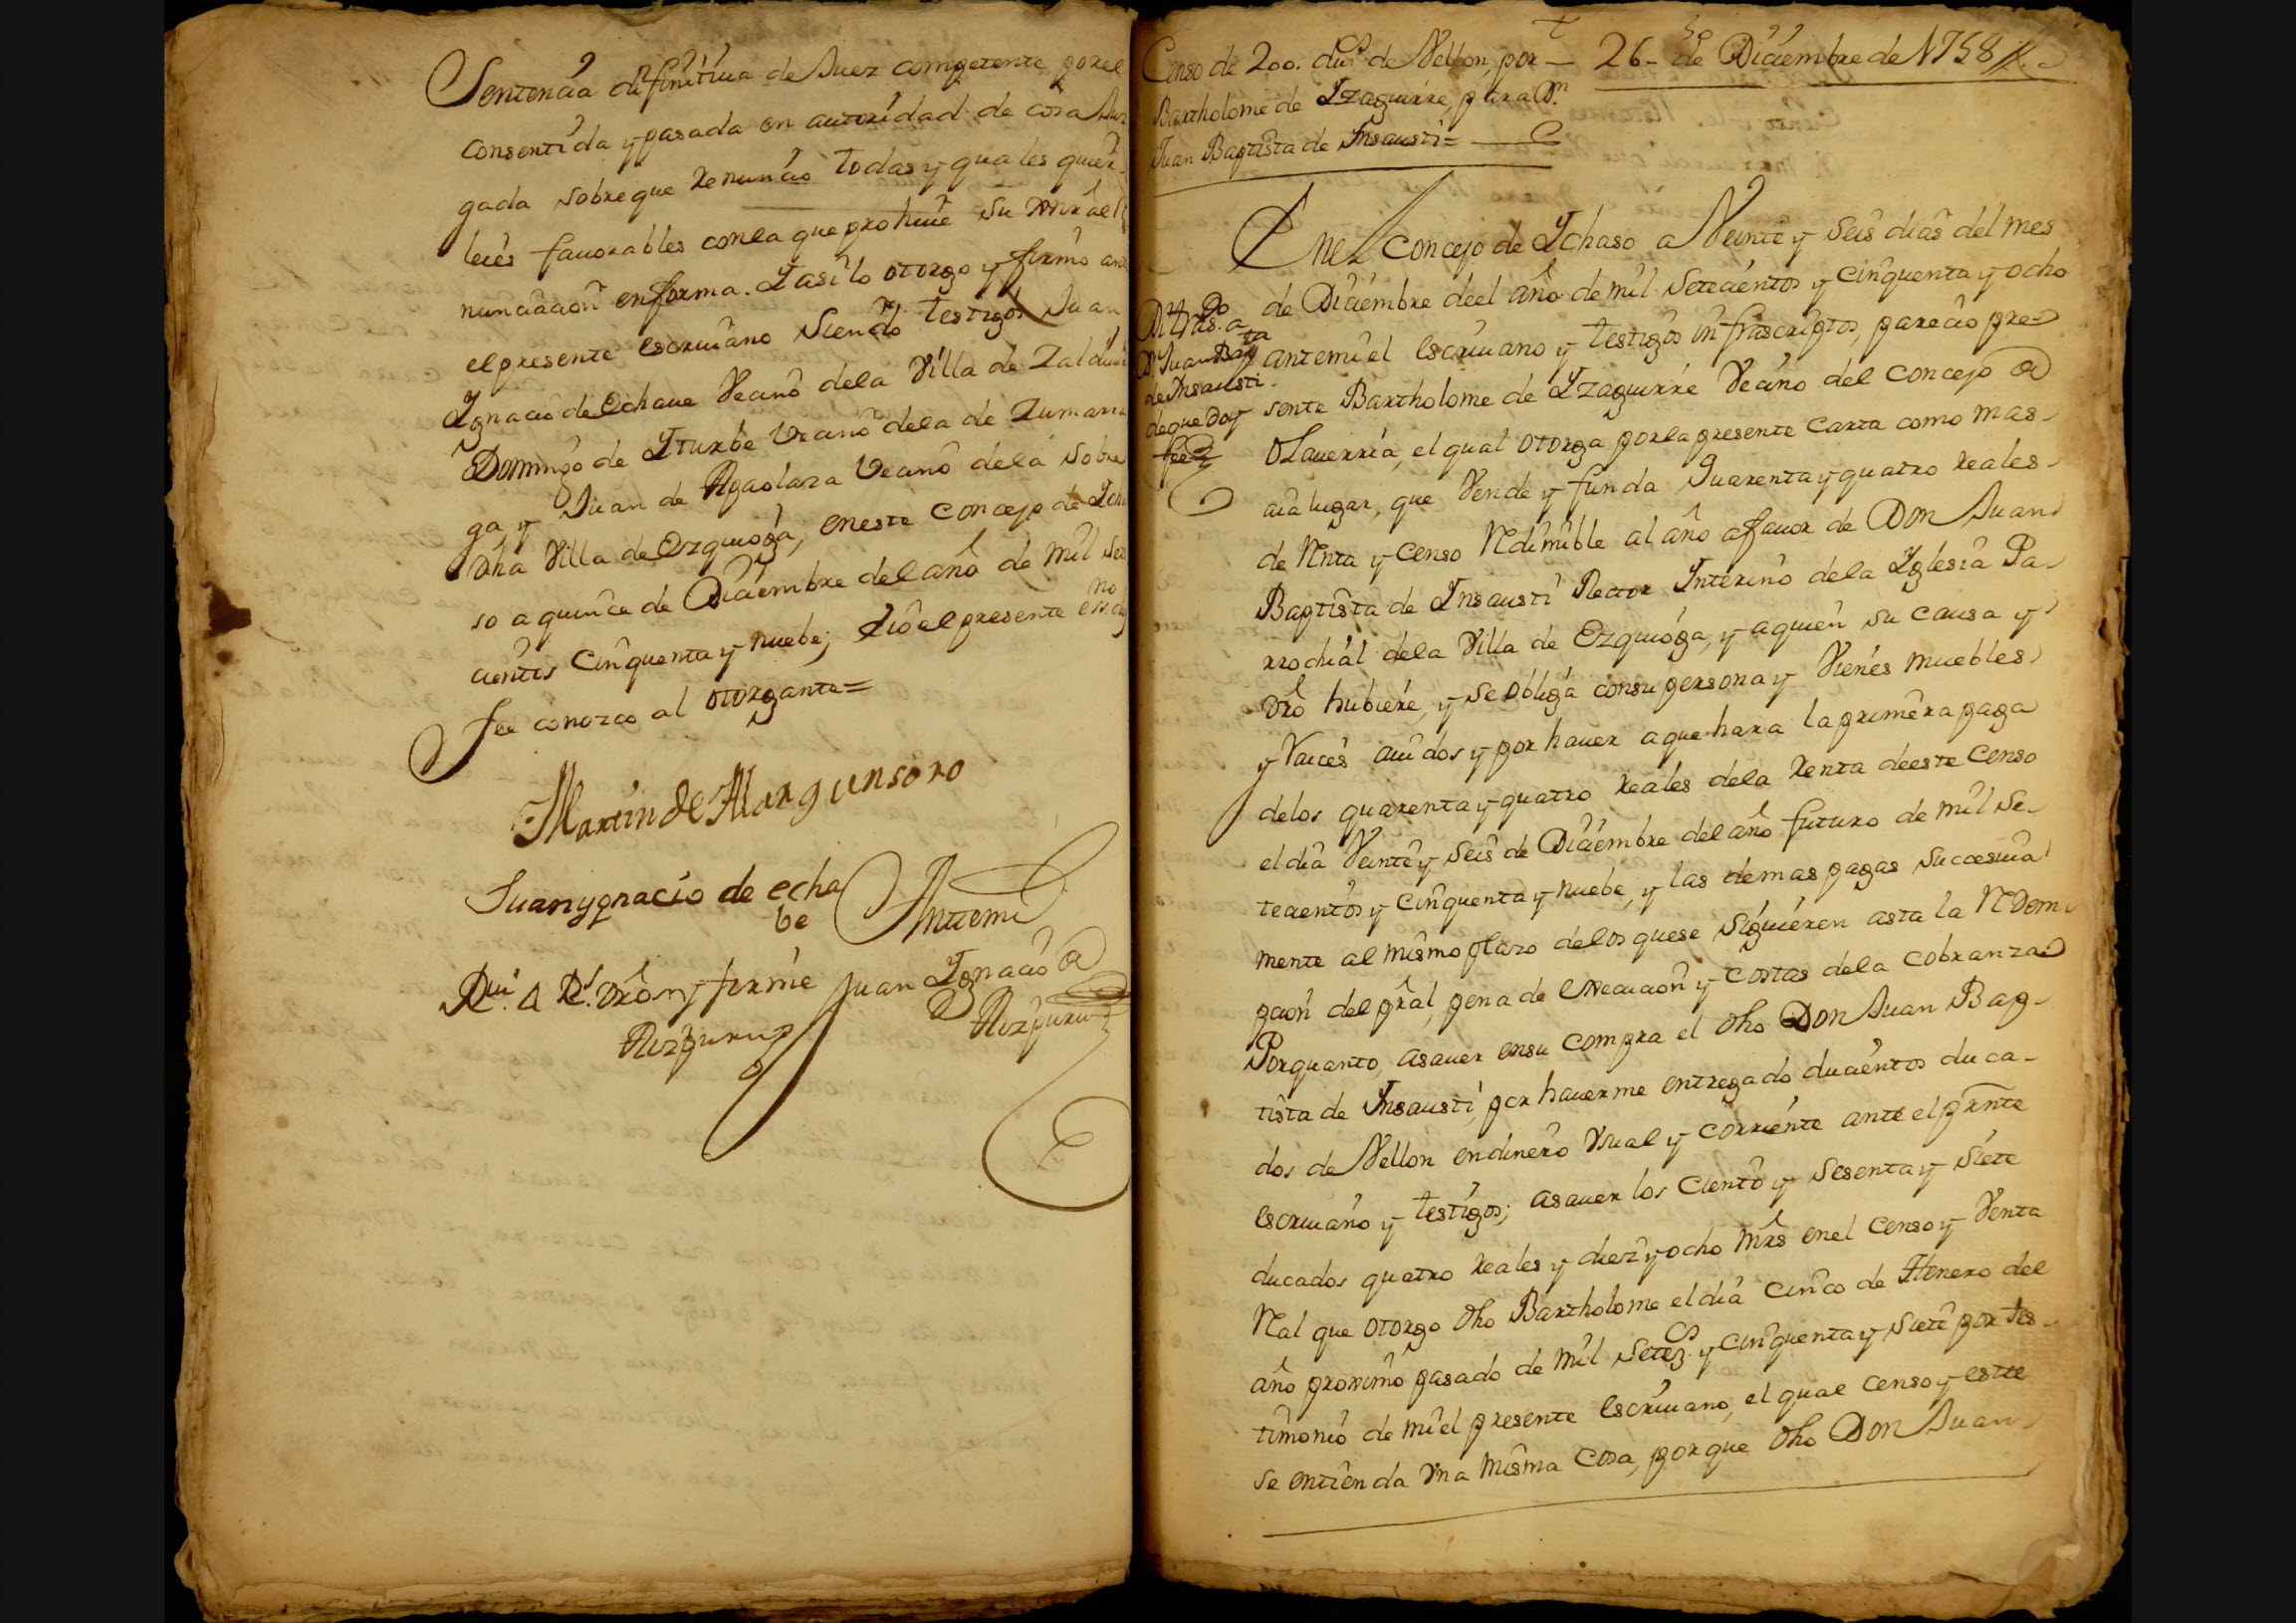 Sentencia difinitiua de Juez competente por el
consentida y pasada en autoridad de cosa Juz
gada sobre que renuncio todas y quales quier
leies fauorables con la que prohiue su
nunciacion en forma. Y asi lo otorgo y firmo an
el presente escriuano siendo testigos Juan
Ignacio de Echaue Vecino dela Villa de Zaldiui
Domingo de Yturbe Vecino dela de Zumarra
ga, y Juan de Vecino dela sobre
dha Villa de Ezquioga, en este Concejo de Ycha
so a quince de Diciembre del año de mil sete
cientos cinquenta y nuebe; Yo el presente essno
fee conozco al otorgante=
Martin de Aranguensoro
Juan ygnacio de echa
be
Ante mi
Rui. a Rl. dro y firme Juan Ignacio de
Aizpuru
Aizpuru
Censo de 200. ducs de Vellon, por
Bartholome de Yzaguirre, para Dn.
Juan Baptista de Insausti=
26 de Diciembre de 1758
En el Concejo de Ychaso a Veinte y seis dias del mes
de Diciembre deel año de mil setecientos y cinquenta y ocho
ante mi el escriuano y testigos infrascriptos, parecio pre
sente Bartholome de Yzaguirre Vecino del Concejo de
Olauerria, el qual otorga por la presente Carta como mas
aia lugar, que Vende y funda quarenta y quatro reales
de Renta y Censo Redimible al año a fauor de Don Juan
Baptista de Insausti Rector Interino dela Iglesia Pa
rrochial dela Villa de Ezquioga, y a quien su causa y
dro hubiere, y se obliga con su persona y Vienes muebles
y Raices auidos y por hauer a que hara la primera paga
delos quarenta y quatro reales dela renta deeste Censo
el dia Veinte y seis de Diciembre del año futuro de mil se
tecientos y cinquenta y nuebe, y las demas pagas succesiua
mente al mismo plazo delos que se siguieren asta la Redem
pcion del pral, pena de execucion y costas dela cobranza
Por quanto, asauer en su compra el dho Don Juan Bap
tista de Insausti, por hauerme entregado ducientos duca
dos de Vellon en dinero Vsual y corriente ante el prnte
escriuano y testigos; asauer los Ciento y sesenta y siete
ducados quatro reales y diez y ocho mrs en el Censo y Venta
Real que otorgo dho Bartholome el dia cinco de Henero del
año proximo pasado de mil setezs y cinquenta y siete por tes
timonio de mi el presente escriuano, el qual censo y este
se entienda Vna misma cosa, porque dho Don Juan
Di tras.do a
Dn Juan Bapta
de Insausti.
de que Doy
fee